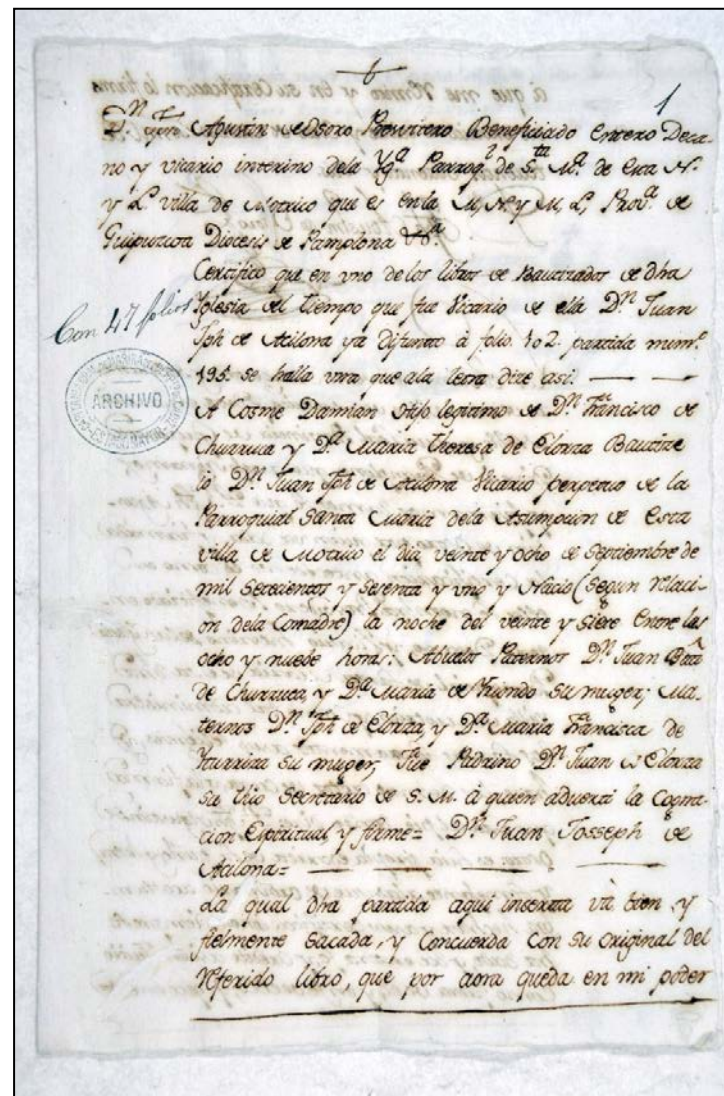 1
Agustin de Osoro Presvitero Beneficiado entero Deca-
no y vicario interino dela Ygª Parroqˡ de Sᵗᵃ Mª de esta N.
y L. villa de Motrico que es enla M, N, y M, L, Provª de
Guipuzcoa Diocesis de Pamplona &ª
Certifico que en vno delos libros de Bautizados de dha
Iglesia del tiempo que fue Vicario de ella Dⁿ Juan
Jph de Acilona ya difunto à folio 102. partida numº
195. se halla vna que ala letra dize asi.
Con 47 folios
ARCHIVO
A Cosme Damian Hijo legitimo de Dⁿ Francisco de
Churruca y Dª Maria Theresa de Elorza Bautize
io Dⁿ Juan Jph de Acilona Vicario perpetuo de la
Parroquial Santa Maria dela Asumpcion de Esta
villa de Motrico el dia veinte y ocho de Septiembre de
mil setecientos y sesenta y vno y Nacio (segun relaci-
on dela Comadre) la noche del veinte y siete entre las
ocho y nuebe horas: Abuelos Paternos Dⁿ Juan Bᵗᵗᵃ
de Churruca, y Dª Maria de Yriondo su muger; Ma-
ternos Dⁿ Jph de Elorza, y Dª Maria Francisca de
Yturriza su muger, Fue Padrino Dⁿ Juan de Elorza
su tio Secretario de S. M. à quien adverti la Cogna-
cion Espiritual, y firme= Dⁿ Juan Josseph de
Acilona=
La qual dha partida aqui inserta và bien y
fielmente sacada, y Concuerda con su original del
referido libro, que por aora queda en mi poder